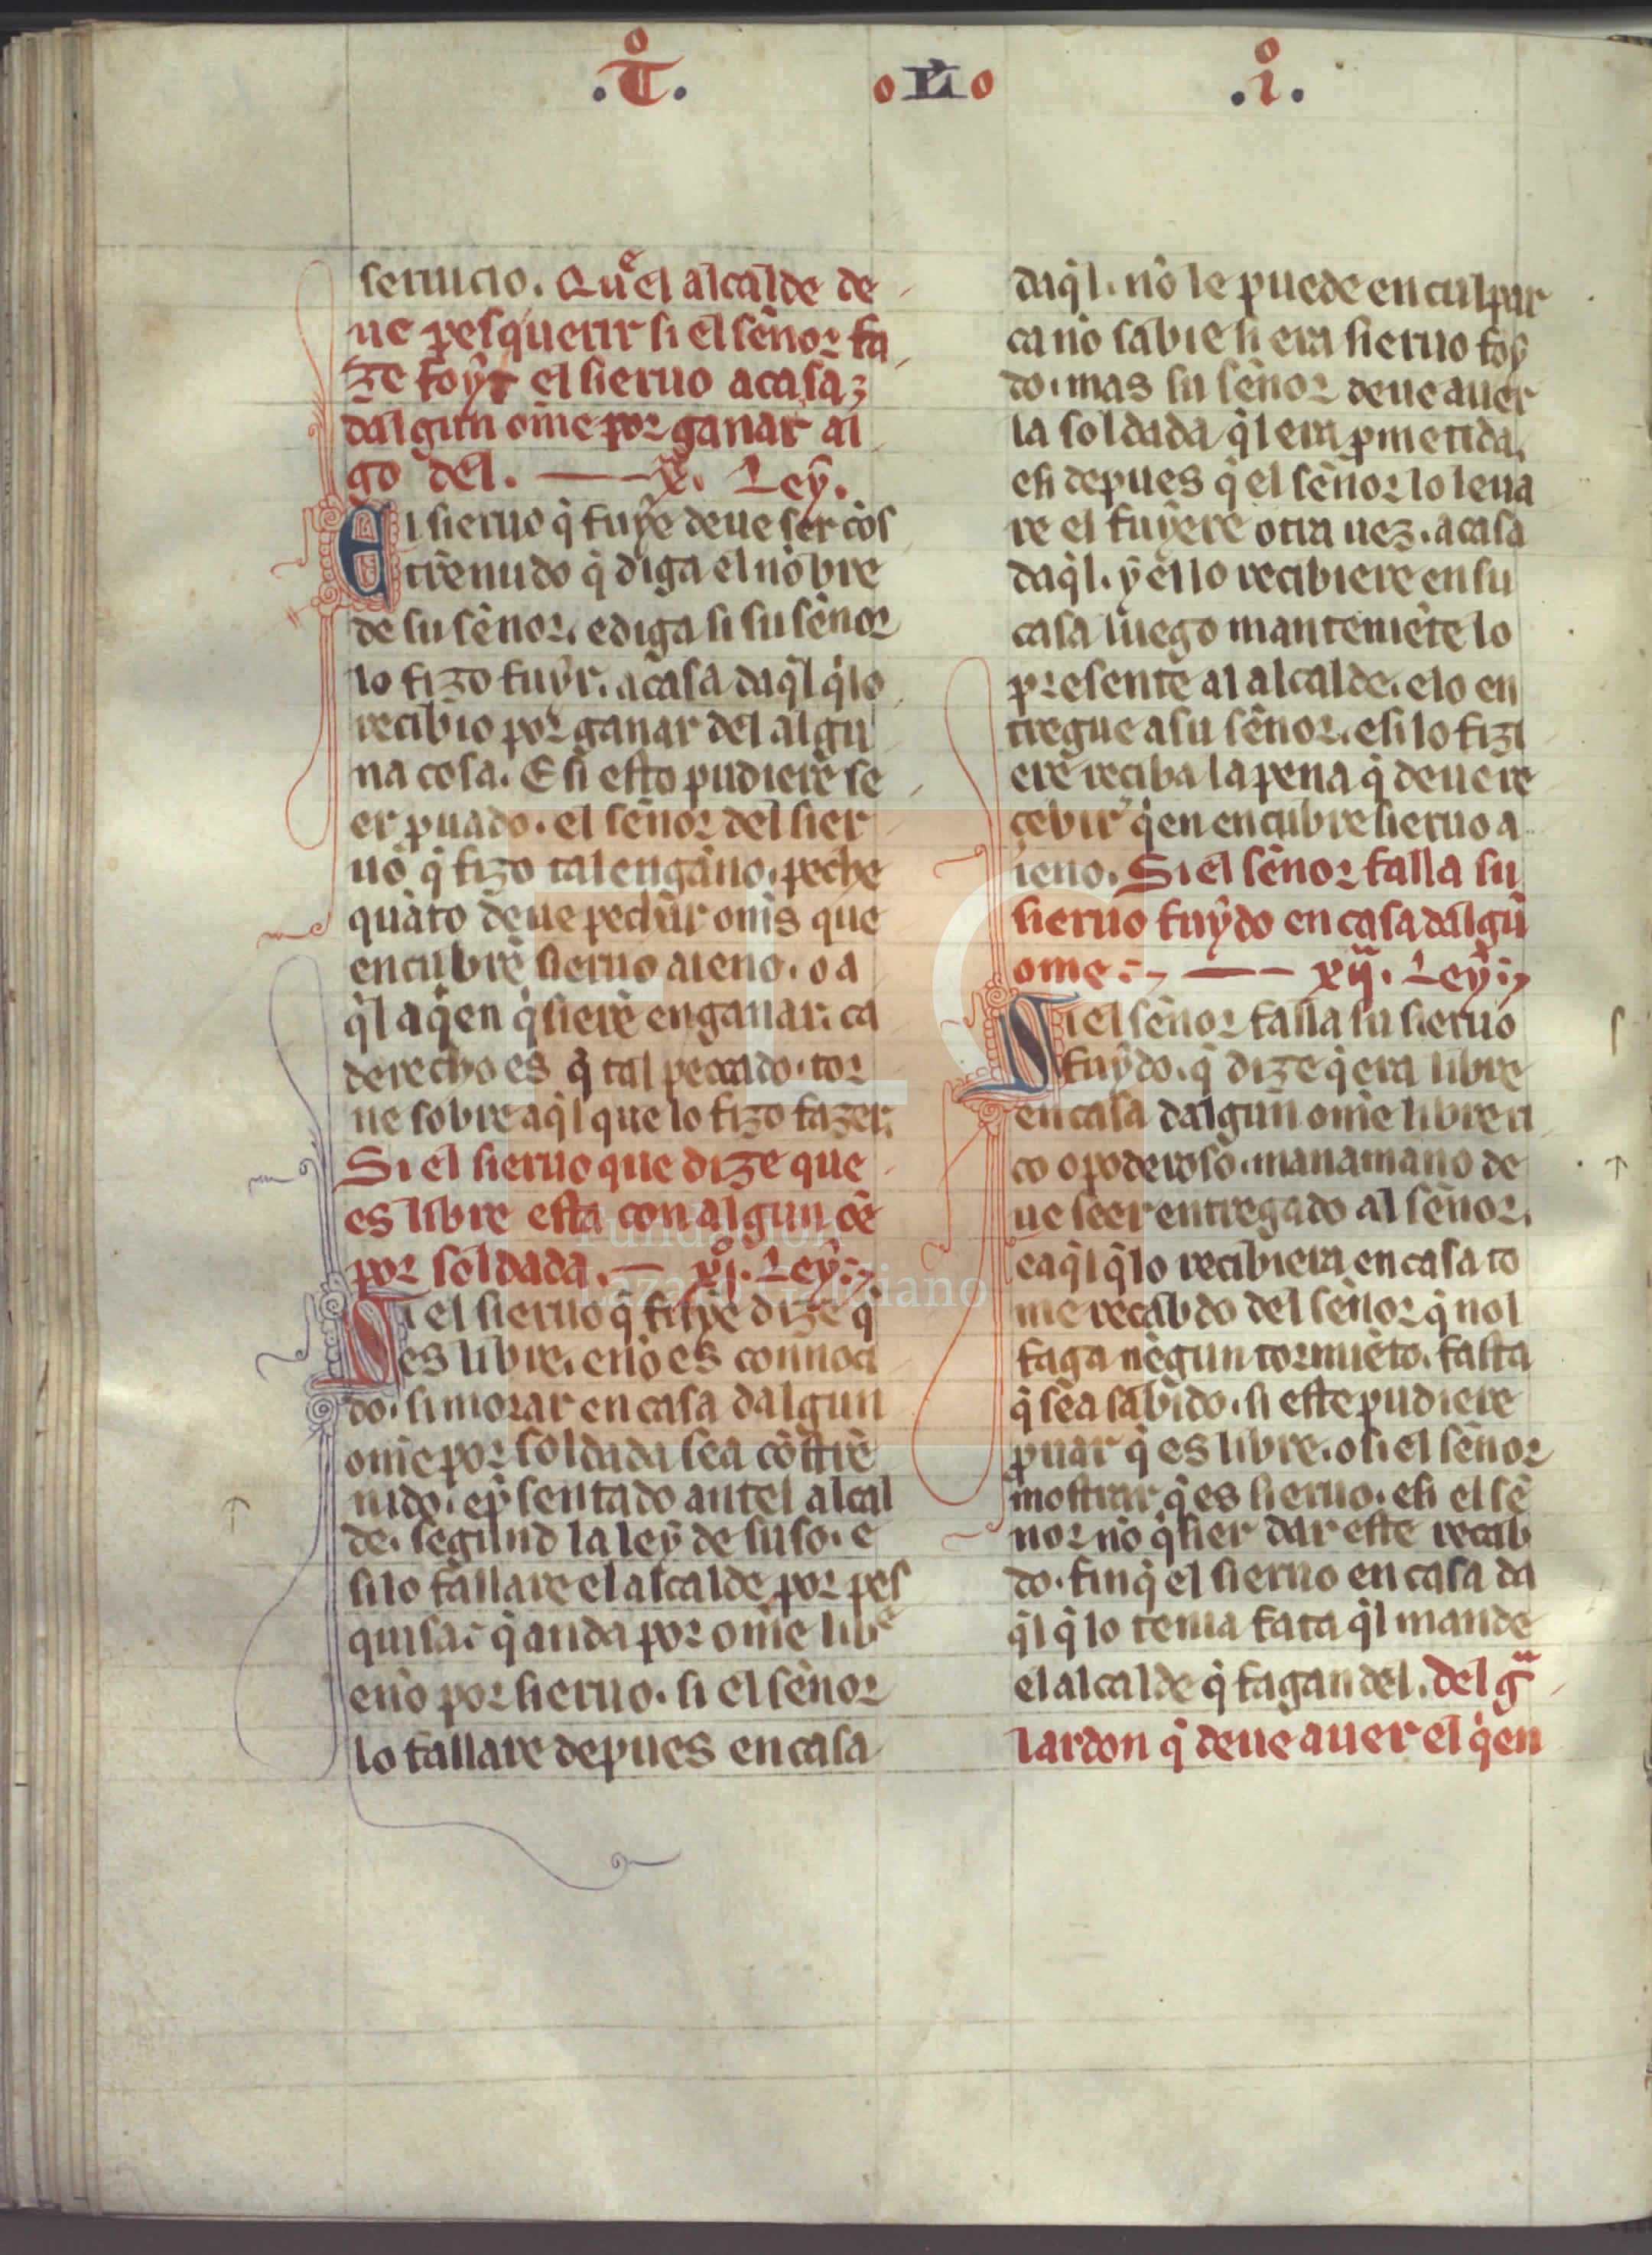 .T̊. oL̊o .i̊.
seruicio. Que el alcalde de
ue pesquerir si el sen̄or fa
ze foyr el sieruo a casa
dalgun ome por ganar al
go del. — x. Ley.
El sieruo q̄ fuye deue ser cōs
trenudo q̄ diga el nōbre
de su sen̄or. e diga si su sen̄or
lo fizo fuyr. a casa daq̄l q̄ lo
recibio por ganar del algu
na cosa. E si esto pudiere se
er ꝓuado. el sen̄or del sier
uo q̄ fizo tal engan̄o. peche
quāto deue pechar om̄s que
encubre sieruo aieno. o a
q̄l a q̄en q̄siere enganar. ca
derecho es q̄ tal peccado. tor
ne sobre aq̄l que lo fizo fazer.
Si el sieruo que dize que
es libre esta con algun oē
por soldada. — xj. Ley.
Si el sieruo q̄ fuye dize q̄
es libre. e nō es connoci
do. si morar en casa dalgun
om̄e por soldada sea cōstre
nido. e p̄sentado antel alcal
de. segund la ley de suso. e
si lo fallare el alcalde por pes
quisar q̄ anda por om̄e libe
e nō por sieruo. si el sen̄or
lo fallare depues en casa
daq̄l. nō le puede enculpar
ca nō sabie si era sieruo foy
do. mas su sen̄or deue auer
la soldada q̄l era ꝓmetida.
e si depues q̄ el sen̄or lo leua
re el fuyere otra uez. a casa
daq̄l. y el lo recibiere en su
casa luego manteniēte lo
presente al alcalde. e lo en
tregue a su sen̄or. e si lo fizi
ere reciba la pena q̄ deue re
çebir q̄en encubre sieruo a
ieno. Si el sen̄or falla su
sieruo fuydo en casa dalgū
ome. — xij. Ley.
Si el sen̄or falla su sieruo
fuydo. q̄ dize q̄ era libre
en casa dalgun om̄e libre ri
co o poderoso. manamano de
ue seer entregado al sen̄or.
e aq̄l q̄ lo recibiera en casa to
me recabdo del sen̄or q̄ nol
faga negun tormiēto. fasta
q̄ sea sabido. si este pudiere
ꝓuar q̄ es libre. o si el sen̄or
mostrar q̄ es sieruo. e si el sē
nor nō q̄sier dar este recab
do. finq̄ el sieruo en casa da
q̄l q̄ lo tenia fata q̄l mande
el alcalde q̄ fagan del. del gᵃ
lardon q̄ deue auer el q̄en
Fundación
Lázaro Galdiano